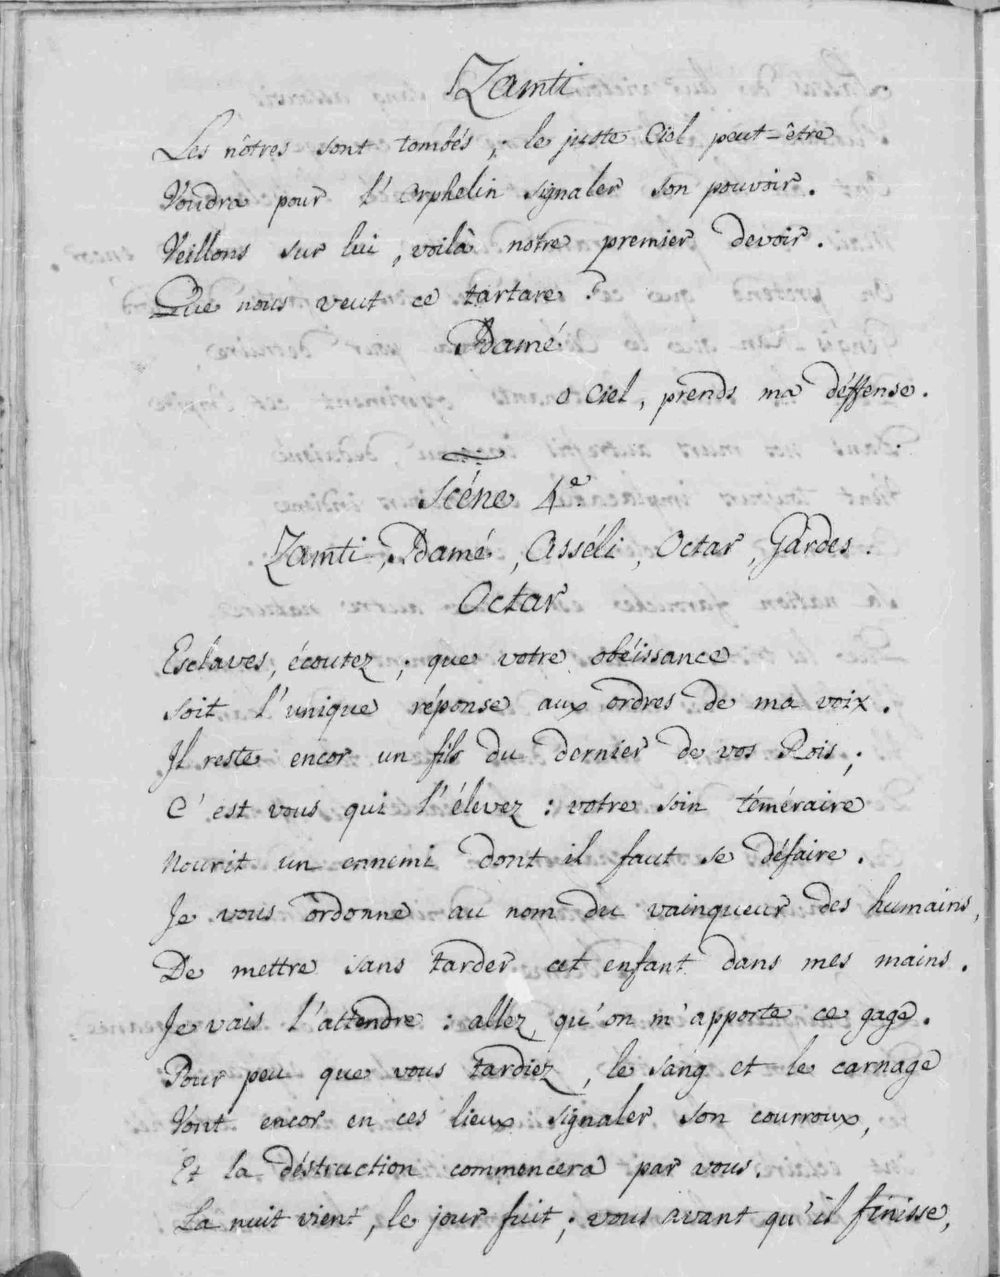 Zamti
Les nôtres sont tombés ; le juste Ciel peut-être
Voudra pour l'orphelin signaler son pouvoir.
Veillons sur lui, voilà notre premier devoir.
Que nous veut ce tartare ?
Idamé
o Ciel, prends ma déffense.
Scéne 4e
Zamti, Idamé, Asséli, Octar, Gardes.
Octar
Esclaves, écoutez ; que votre obéissance
soit l'unique réponse aux ordres de ma voix.
Il reste encor un fils du dernier de vos Rois ;
C'est vous qui l'élevez : votre soin téméraire
Nourit un ennemi dont il faut se défaire.
Je vous ordonne au nom du vainqueur des humains,
De mettre sans tarder cet enfant dans mes mains.
Je vais l'attendre : allez, qu'on m'apporte ce gage.
Pour peu que vous tardiez, le sang et le carnage
Vont encor en ces lieux signaler son courroux,
Et la déstruction commencera par vous.
La nuit vient, le jour fuit ; vous avant qu'il finisse,